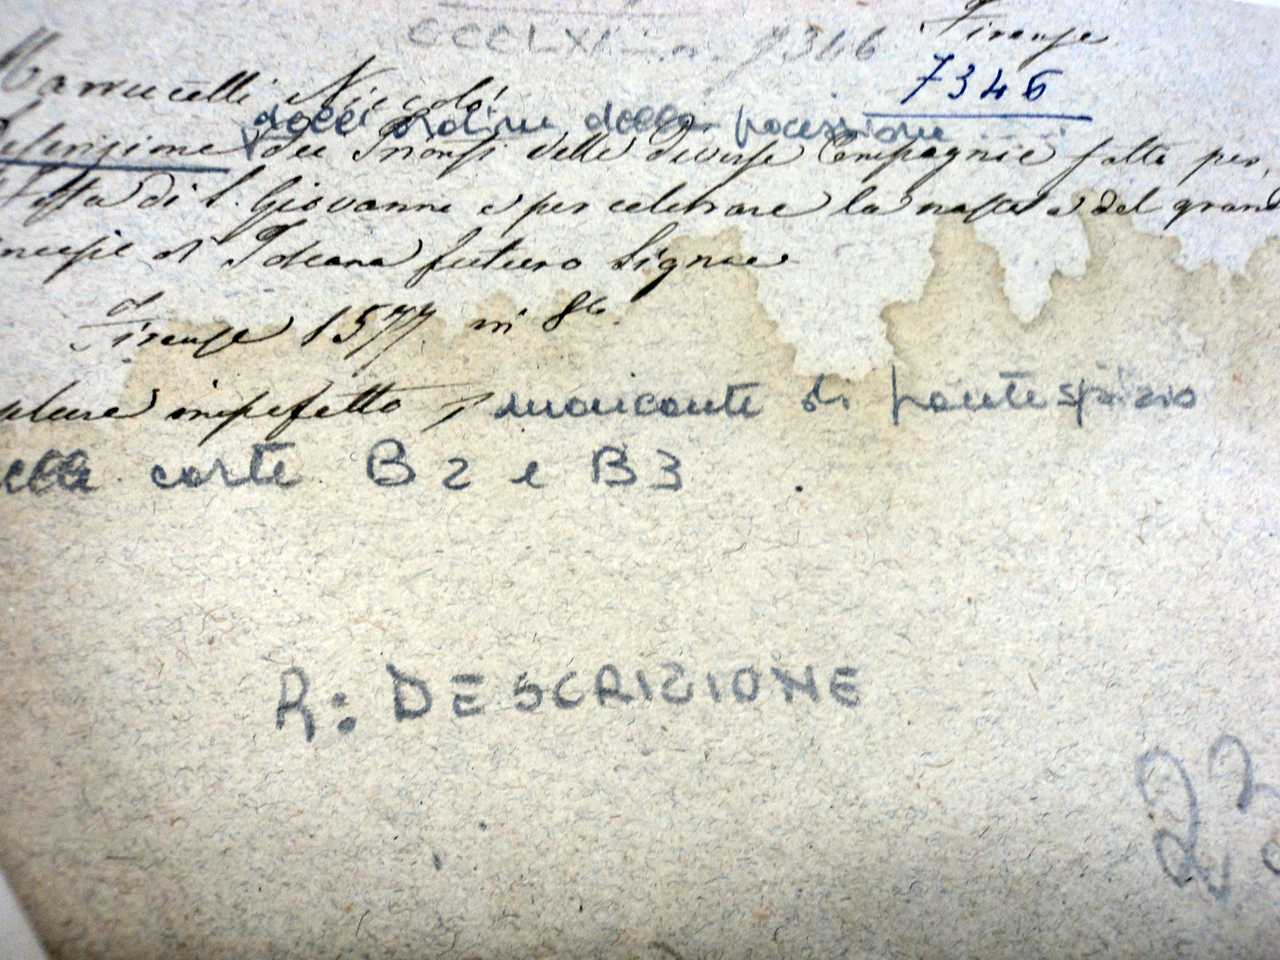 CCCLXI - n. 7346 Firenze
7346
Mannucelli Niccolò
degli ordini della processione
Descrizione dei Trionfi delle diverse Compagnie fatte per
Festa di S. Giovanni e per celebrare la nascita del gran
Principe di Toscana futuro Signore
Firenze 1577 in 8º.
imperfetto, mancante di frontespizio
e delle carte B2 e B3.
R: DESCRIZIONE
23